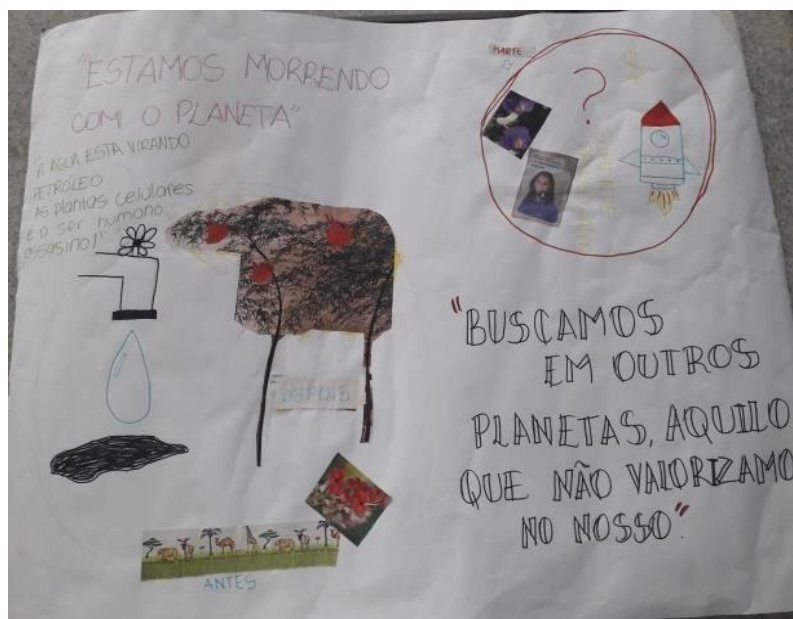 "ESTAMOS MORRENDO
COM O PLANETA"
"A ÁGUA ESTÁ VIRANDO
PETRÓLEO
AS plantas celulares
e o ser humano
assasino!"
MARTE
?
DEPOIS
ANTES
"BUSCAMOS
EM OUTROS
PLANETAS, AQUILO
QUE NÃO VALORIZAMO
NO NOSSO".